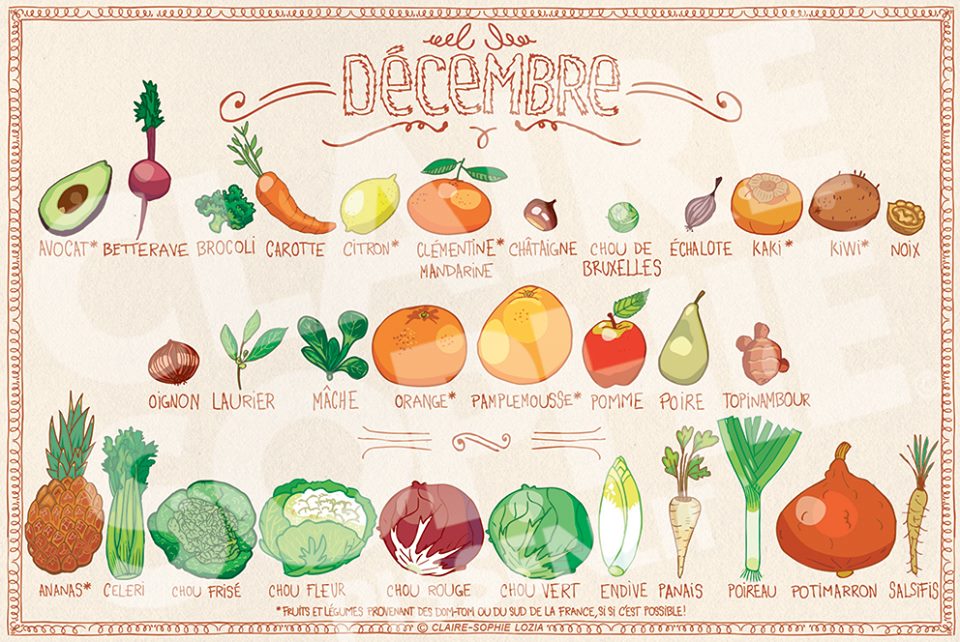 DÉCEMBRE
AVOCAT* BETTERAVE BROCOLI CAROTTE CITRON* CLÉMENTINE* CHÂTAIGNE CHOU DE ÉCHALOTE KAKI* KIWI* NOIX
MANDARINE BRUXELLES
OIGNON LAURIER MÂCHE ORANGE* PAMPLEMOUSSE* POMME POIRE TOPINAMBOUR
ANANAS* CELERI CHOU FRISÉ CHOU FLEUR CHOU ROUGE CHOU VERT ENDIVE PANAIS POIREAU POTIMARRON SALSIFIS
*FRUITS ET LÉGUMES PROVENANT DES DOM-TOM OU DU SUD DE LA FRANCE, SI SI C'EST POSSIBLE!
© CLAIRE-SOPHIE LOZIA